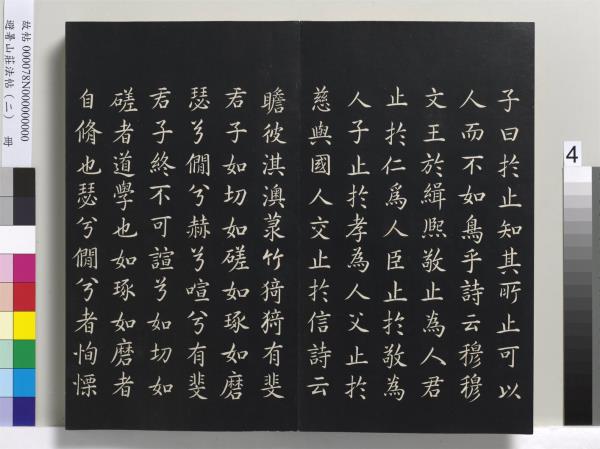 子曰於止知其所止可以
人而不如鳥乎詩云穆穆
文王於緝熙敬止為人君
止於仁為人臣止於敬為
人子止於孝為人父止於
慈與國人交止於信詩云
瞻彼淇澳菉竹猗猗有斐
君子如切如磋如琢如磨
瑟兮僩兮赫兮喧兮有斐
君子終不可諠兮如切如
磋者道學也如琢如磨者
自脩也瑟兮僩兮者恂慄
故帖 000078N000000000
避暑山莊法帖（二） 冊
4